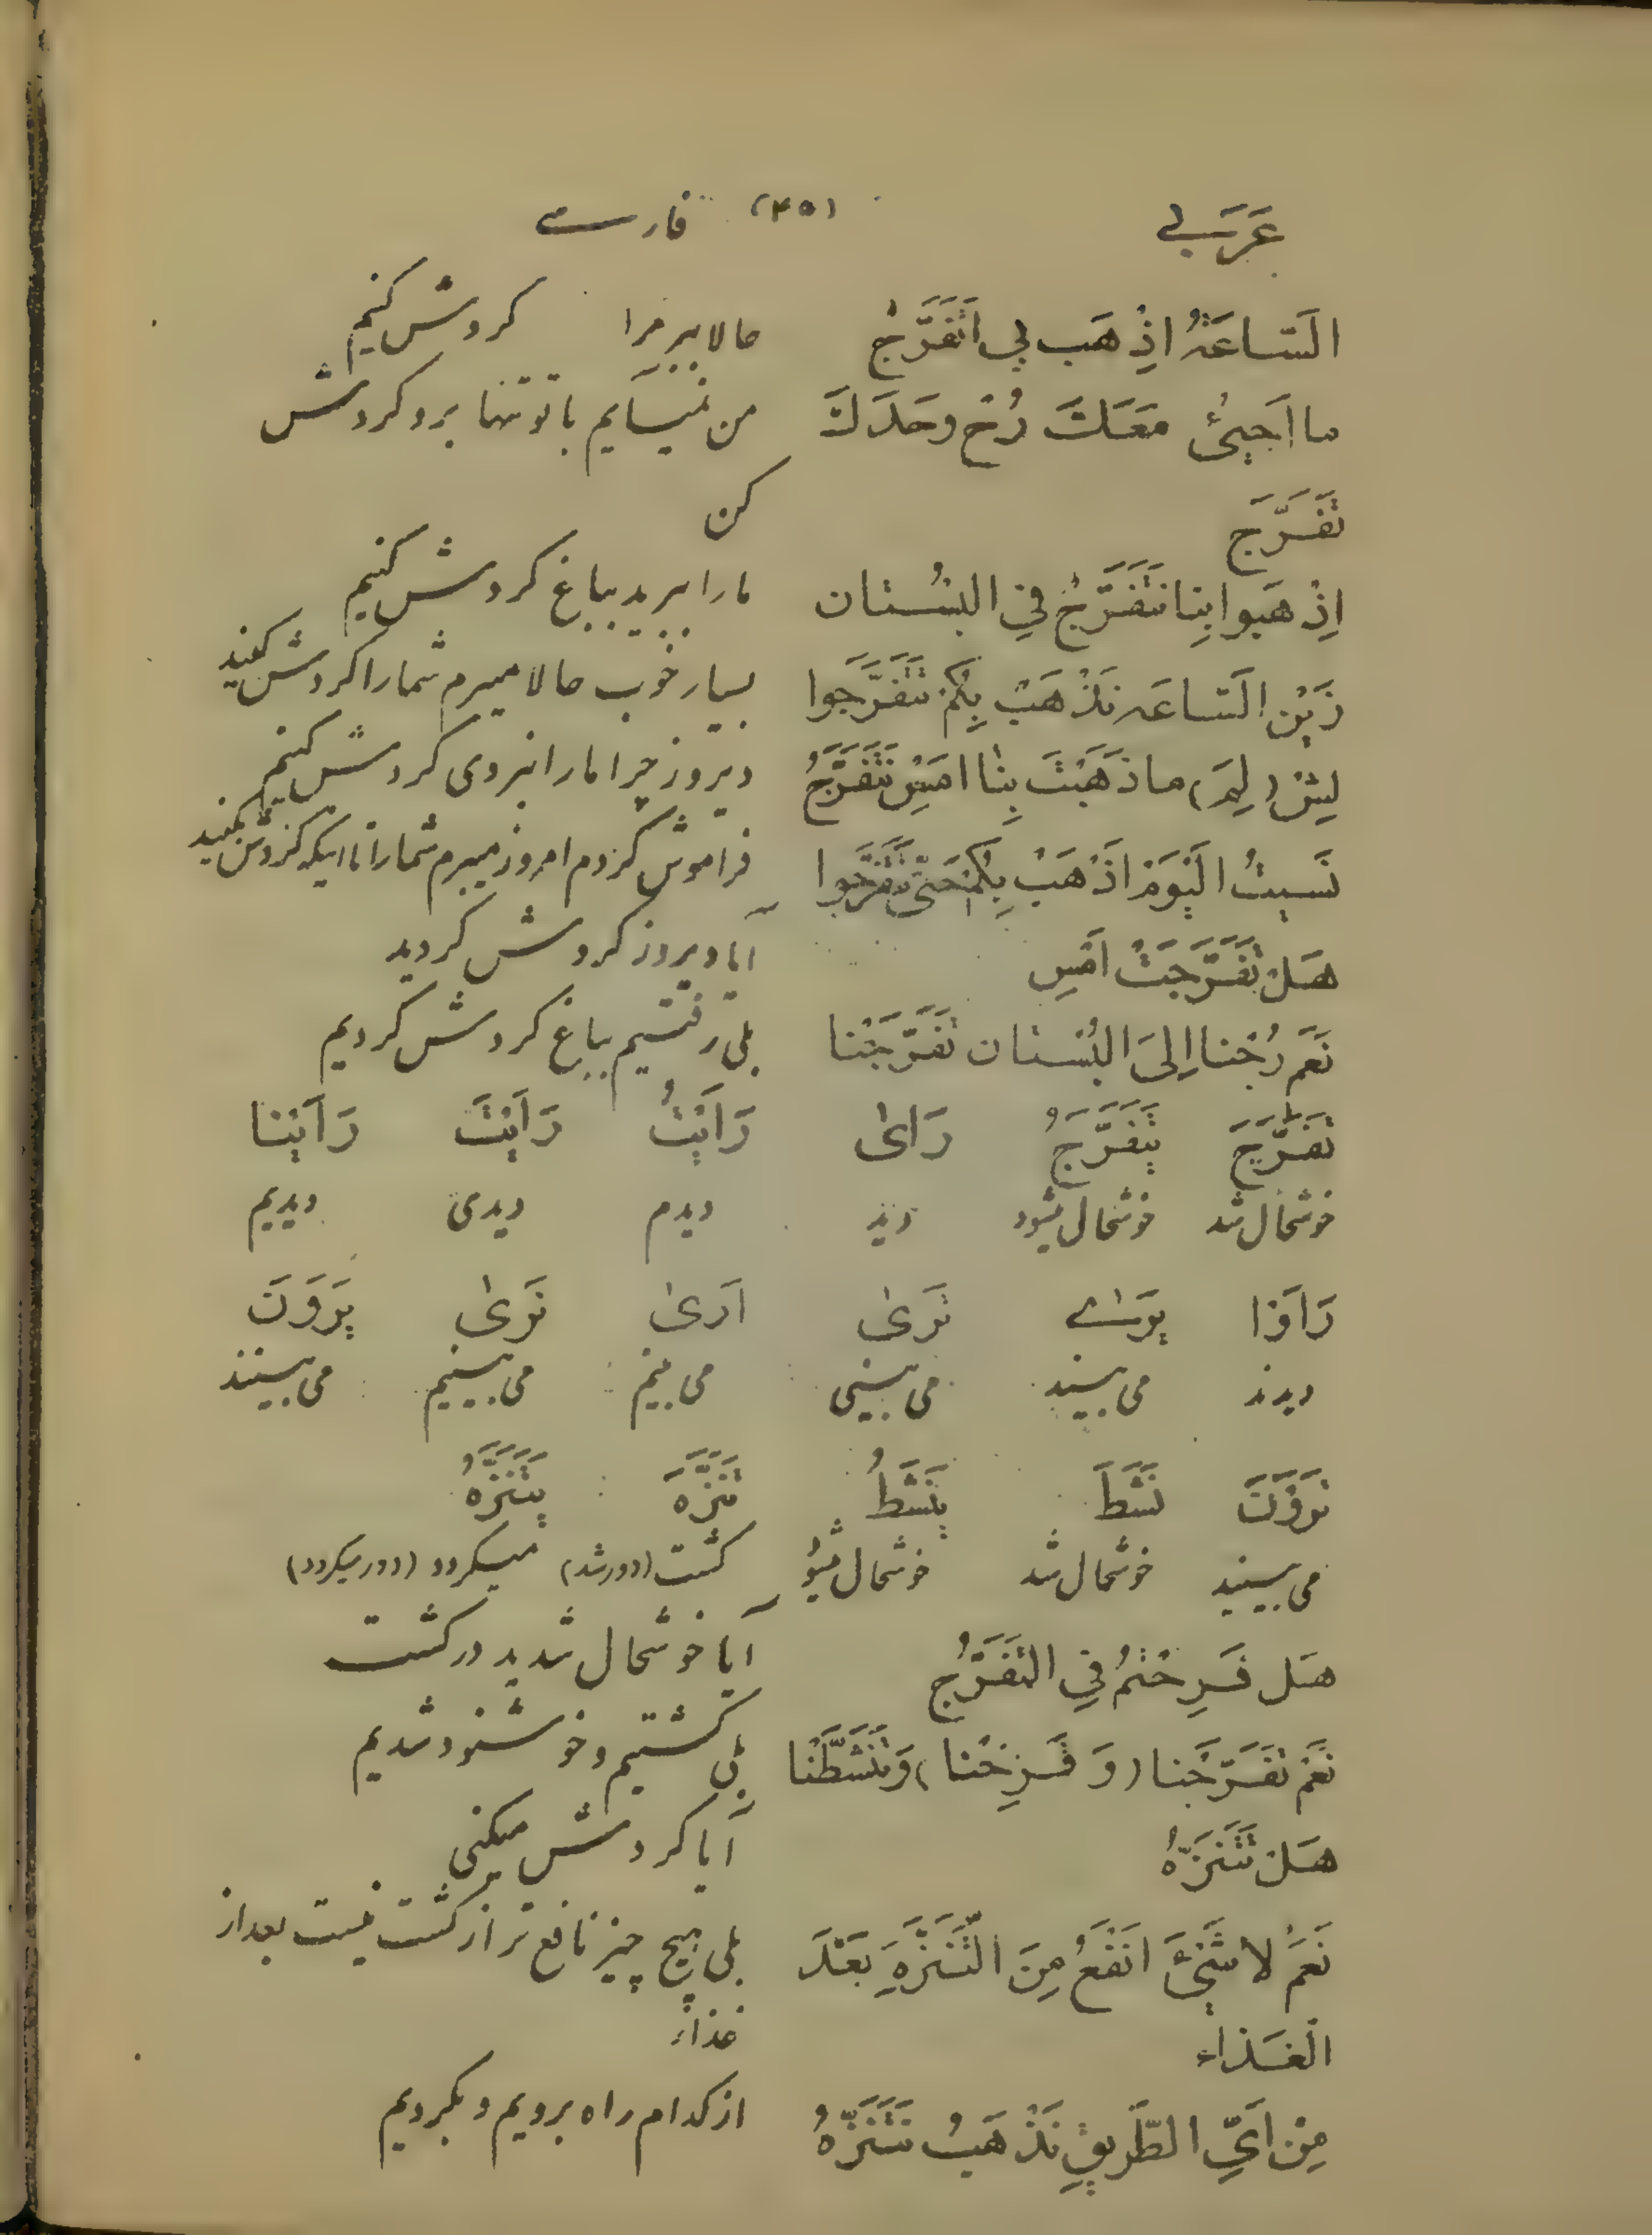 عَرَبی (۴۵) فارسی
اَلسّاعَةُ اِذْهَب بِي اَتَفَرَّجُ حالا ببر مرا گردش کنیم
ما اَجيئُ مَعَكَ رُحْ وحَدَكَ من نمیآیم با تو تنها برو گردش
تَفَرَّجَ کن
اِذْهَبوا بِنا نَتَفَرَّجُ فِي البُسْتان ما را ببرید بباغ گردش کنیم
زَيْن اَلسّاعَه نَذْهَبُ بِكُمْ تَتَفَرَّجَوا بسیار خوب حالا میبرم شما را گردش کنید
لِيشْ (لِمَ) ما ذَهَبْتَ بِنٰا اَمَسِ نَتَفَرَّجُ دیروز چرا ما را نبردی گردش کنیم
نَسيتُ اَلْيَوْمَ اَذْهَبُ بِكُمْ حَتّىٰ تَتَفَرَّجَوا فراموش کردم امروز میبرم شما را تا اینکه گردش بکنید
هَلْ تَفَرَّجَتُ اَمْسِ آیا دیروز گردش کردید
نَعَم رُحْنا اِلىَ البُسْتان تَفَرَّجْنا بلی رفتیم بباغ گردش کردیم
تَفَرَّجَ يَتَفَرَّجُ رَاىٰ رَاَيْتُ رَاَيْتَ رَاَيْنا
خوشحال شد خوشحال میشود دید دیدم دیدی دیدیم
رَاَوْا يَرىٰ تَرىٰ اَرىٰ نَرىٰ يَرَوْنَ
دیدند می بیند می بینی می بینم می بینیم می بینند
تَرَوْنَ نَشَطَ يَنْشَطُ تَنَزَّهَ يَتَنَزَّهُ
می بینید خوشحال شد خوشحال میشود گشت (دور شد) میگردد (دور میگردد)
هَل فَرِحْتُمْ فِي التَفَرُّجِ آیا خوشحال شدید در گشت
نَعَمْ تَفَرَّجْنا (وَ فَرِحْنا) وَتَنَشَّطْنا بلی گشتیم و خوشنود شدیم
هَلْ تَتَنَزَّهُ آیا گردش میکنی
نَعَمْ لا شَيْئَ اَنْفَعُ مِنَ التَّنَزُّهِ بَعْدَ بلی هیچ چیز نافع تر از گشت نیست بعد از
الْغَذاء غذاء
مِنْ اَيِّ الطَّريقِ نَذْهَبُ نَتَنَزَّهُ از کدام راه برویم و بگردیم